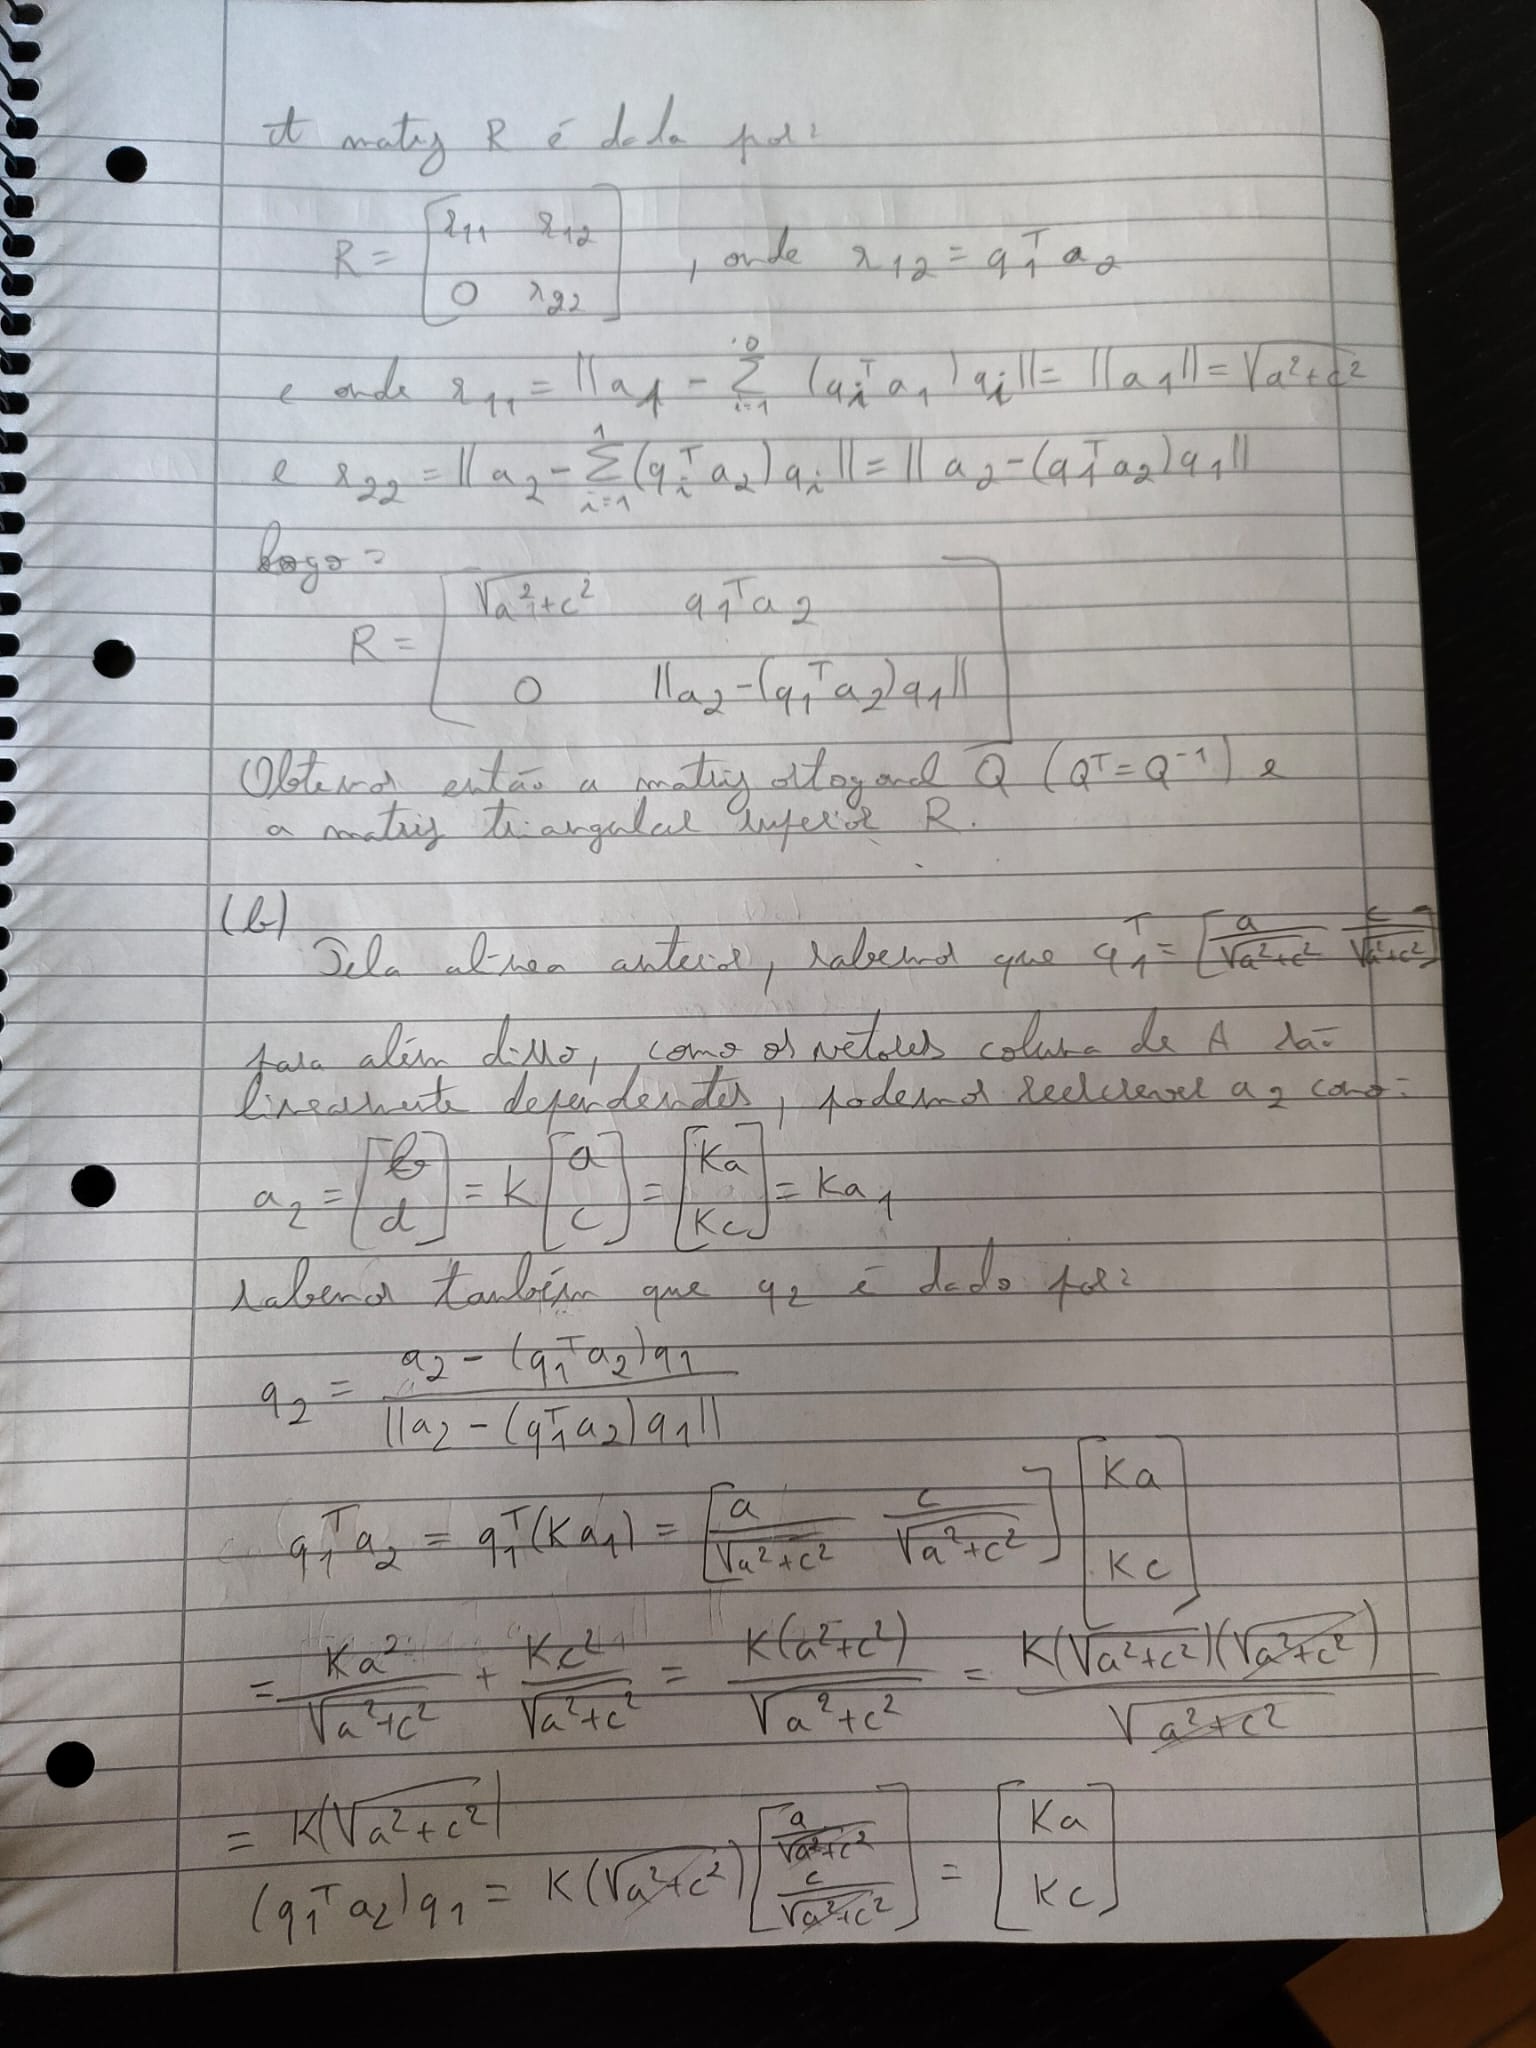 A matriz R é dada por:
R = [r₁₁ r₁₂; 0 r₂₂], onde r₁₂ = q₁ᵀ a₂
e onde r₁₁ = ||a₁ - Σᵢ₌₁⁰ (qᵢᵀ a₁) qᵢ|| = ||a₁|| = √(a²+c²)
e r₂₂ = ||a₂ - Σᵢ₌₁¹ (qᵢᵀ a₂) qᵢ|| = ||a₂ - (q₁ᵀ a₂) q₁||
Logo:
R = [√(a²+c²) q₁ᵀ a₂; 0 ||a₂ - (q₁ᵀ a₂) q₁||]
Obtemos então a matriz ortogonal Q (Qᵀ = Q⁻¹) e
a matriz triangular superior R.
(b)
Pela alínea anterior, sabemos que q₁ᵀ = [a/√(a²+c²) c/√(a²+c²)]
para além disso, como os vetores coluna de A são
linearmente dependentes, podemos reescrever a₂ como:
a₂ = [b; d] = k [a; c] = [Ka; Kc] = Ka₁
sabemos também que q₂ é dado por:
q₂ = (a₂ - (q₁ᵀ a₂) q₁) / ||a₂ - (q₁ᵀ a₂) q₁||
q₁ᵀ a₂ = q₁ᵀ (K a₁) = [a/√(a²+c²) c/√(a²+c²)] [Ka; Kc]
= Ka²/√(a²+c²) + Kc²/√(a²+c²) = K(a²+c²)/√(a²+c²) = K(√(a²+c²))(√(a²+c²))/√(a²+c²)
= K(√(a²+c²))
(q₁ᵀ a₂) q₁ = K(√(a²+c²)) [a/√(a²+c²); c/√(a²+c²)] = [Ka; Kc]